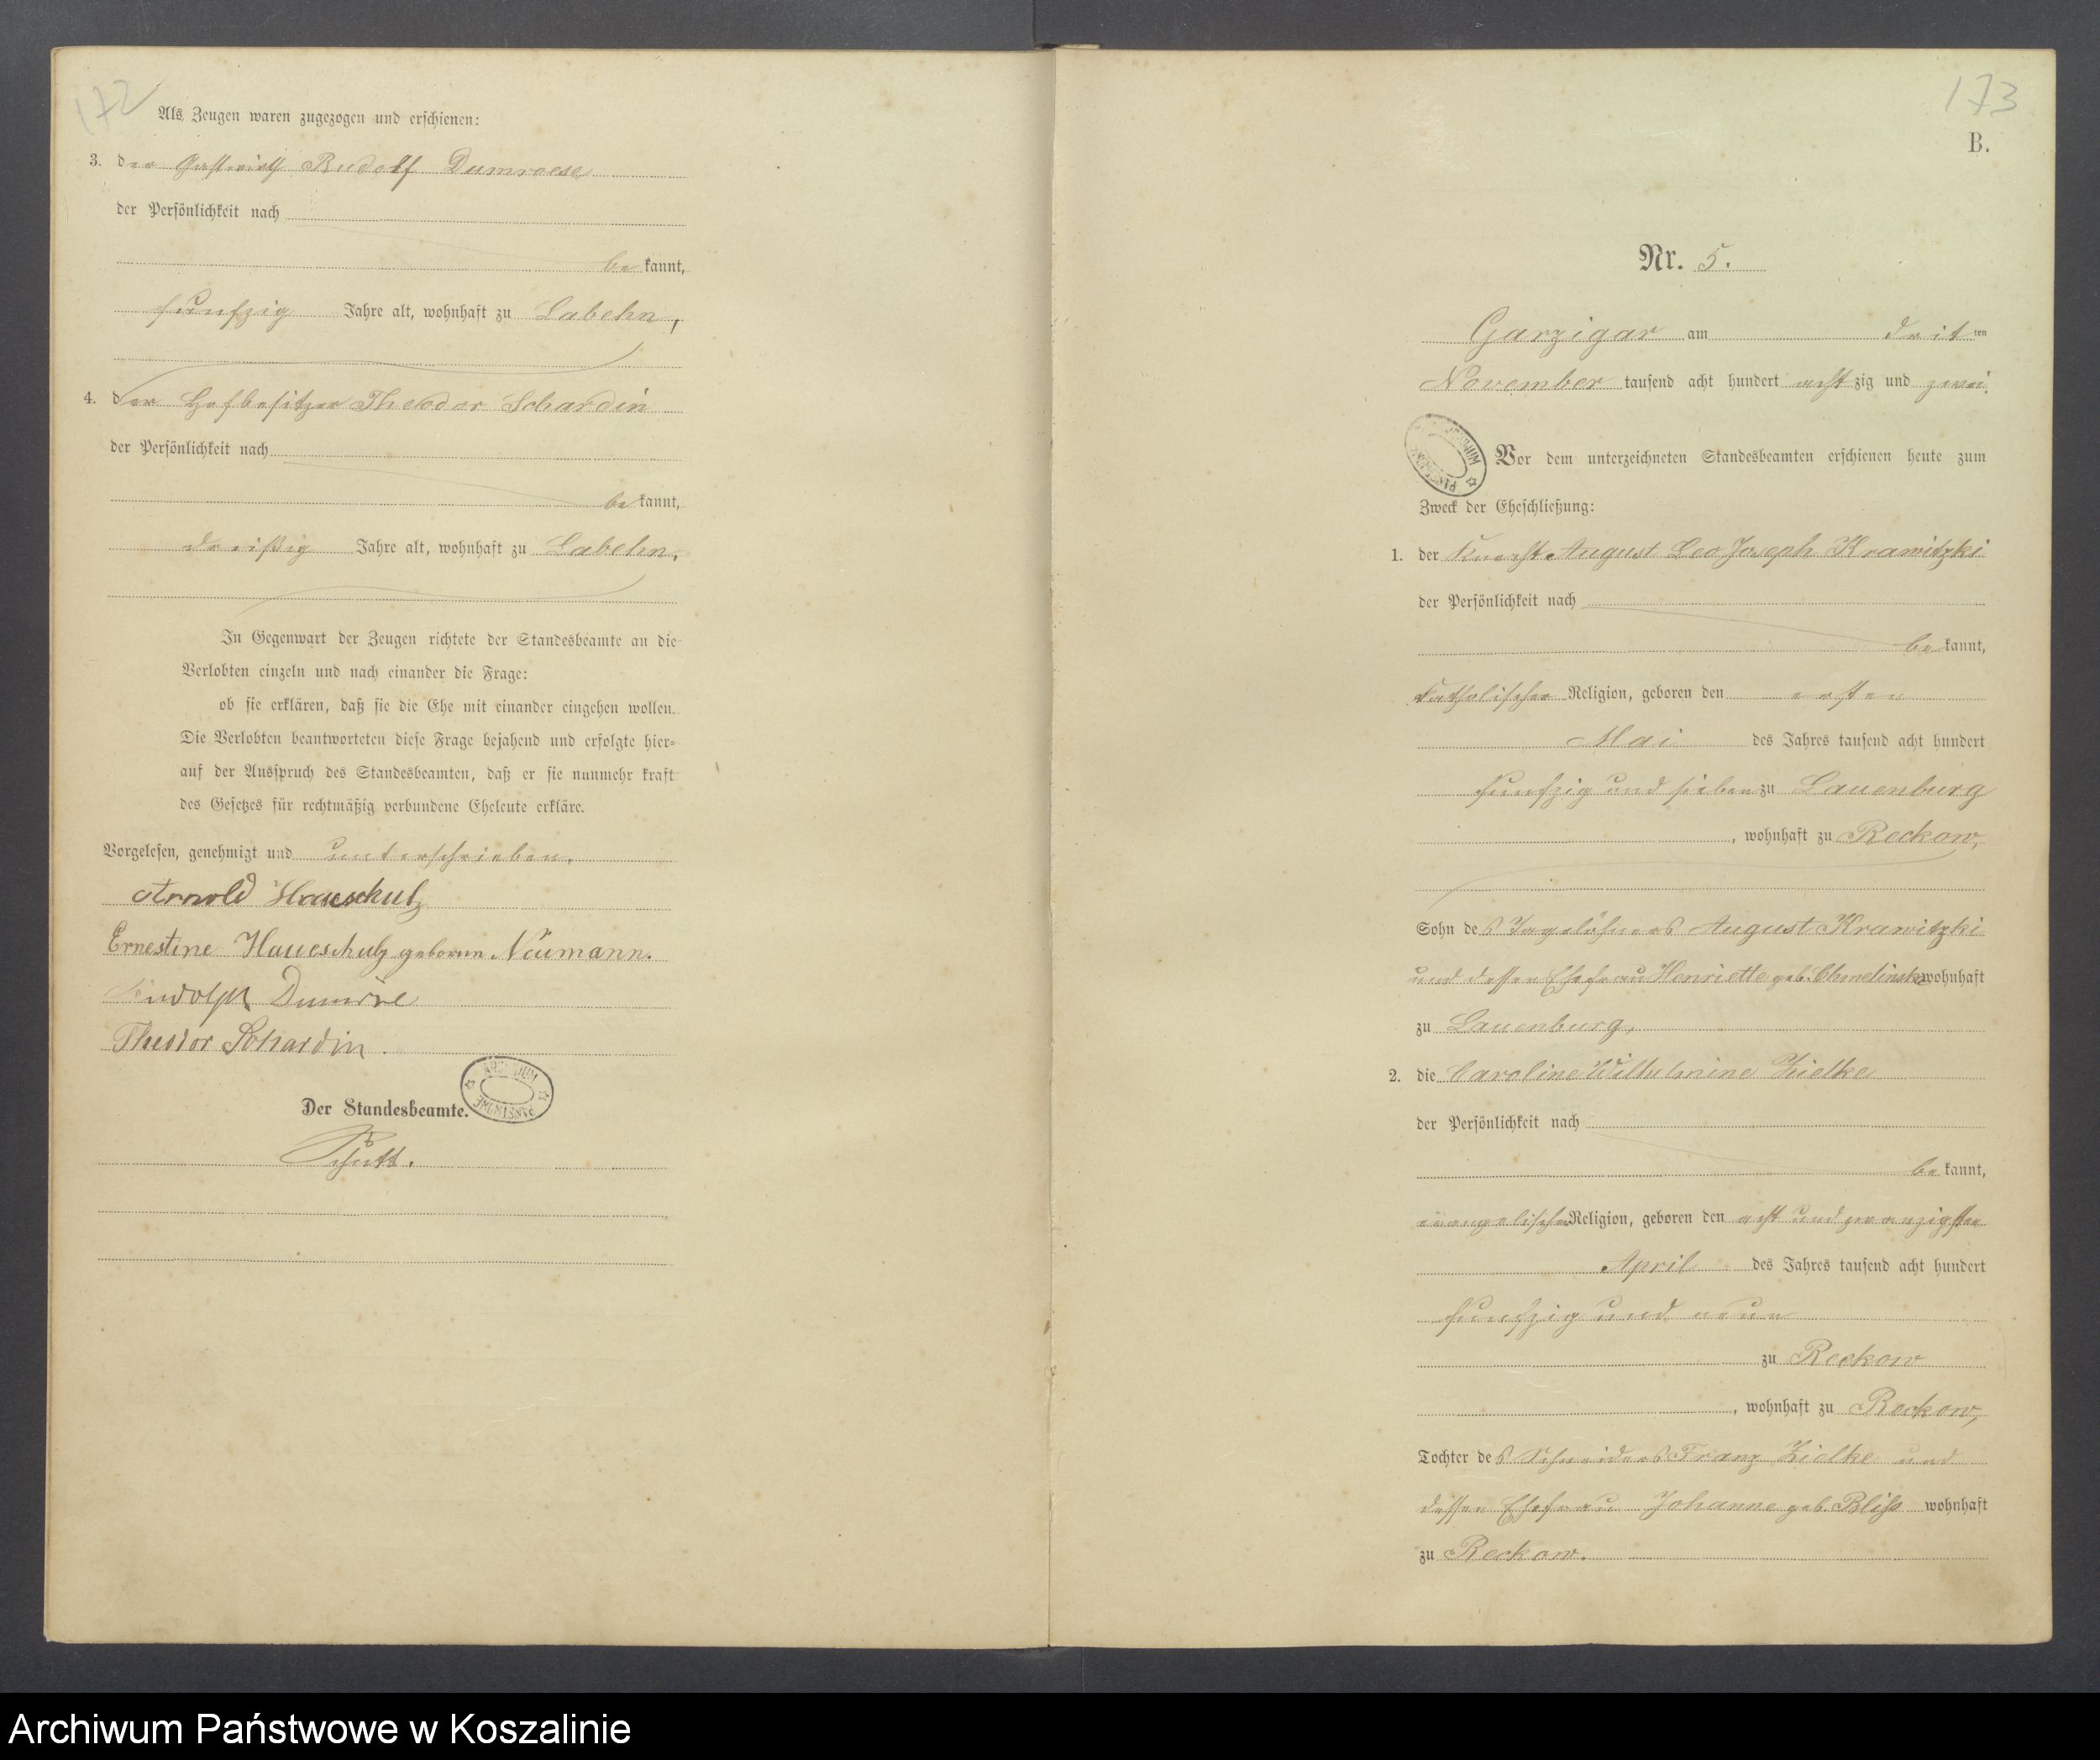 172
Als Zeugen waren zugezogen und erschienen:
3. der Gastwirth Rudolf Dumroese
der Persönlichkeit nach
be kannt,
funfzig Jahre alt, wohnhaft zu Labehn,
4. der Hofbesitzer Theodor Schardin
der Persönlichkeit nach
be kannt,
dreißig Jahre alt, wohnhaft zu Labehn.
In Gegenwart der Zeugen richtete der Standesbeamte an die
Verlobten einzeln und nach einander die Frage:
ob sie erklären, daß sie die Ehe mit einander eingehen wollen.
Die Verlobten beantworteten diese Frage bejahend und erfolgte hier-
auf der Ausspruch des Standesbeamten, daß er sie nunmehr kraft
des Gesetzes für rechtmäßig verbundene Eheleute erkläre.
Vorgelesen, genehmigt und unterschrieben.
Arnold Haueschulz
Ernestine Haueschulz geboren Neumann.
Theodor Schardin.
Der Standesbeamte.
173
B.
Nr. 5.
Garzigar am drit ten
November tausend acht hundert acht zig und zwei.
Vor dem unterzeichneten Standesbeamten erschienen heute zum
Zweck der Eheschließung:
1. der Knecht August Leo Joseph Krawitzki
der Persönlichkeit nach
be kannt,
katholischer Religion, geboren den ersten
Mai des Jahres tausend acht hundert
funfzig und sieben zu Lauenburg
, wohnhaft zu Reckow,
Sohn des Tagelöhners August Krawitzki
und dessen Ehefrau Henriette geb. wohnhaft
zu Lauenburg,
2. die Caroline Wilhelmine Zielke
der Persönlichkeit nach
be kannt,
evangelischer Religion, geboren den acht und zwanzigsten
April des Jahres tausend acht hundert
funfzig und neun
zu Reckow
, wohnhaft zu Reckow,
Tochter des Schneiders Franz Zielke und
dessen Ehefrau Johanne geb. Bliß wohnhaft
zu Reckow.
Archiwum Państwowe w Koszalinie